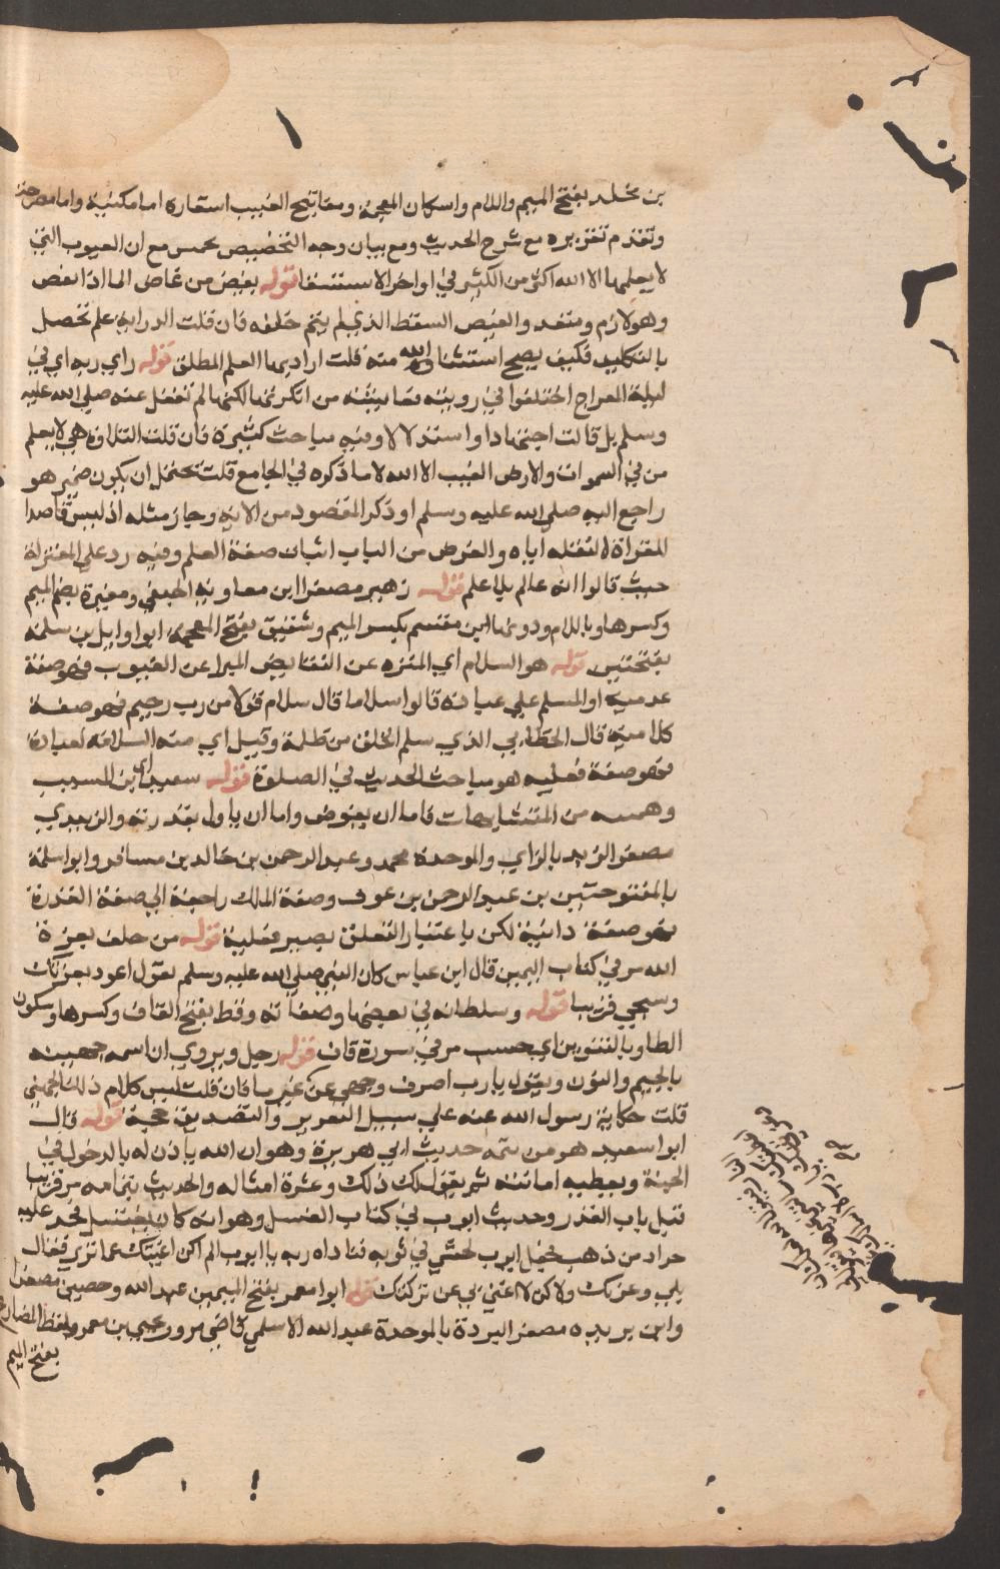 بن مخلد بفتح الميم واللام واسكان المعجمة ومفاتيح الغيب استعارة اما مكنية واما مصرحة
وتقدم تقريره مع شرح الحديث ومع بيان وجه التخصيص بخمس مع ان الغيوب التي
لا يعلمها الا الله اكثر من الكثير في اواخر الاستسقا قوله يغيض من غاض الما اذا نقص
وهو لازم ومتعد والغيض السقط الذي لم يتم خلقه فان قلت الدراية علم تحصل
بالتكليف فكيف يصح استثنا الله منه قلت اراد بها العلم المطلق قوله راي ربه اي في
ليلة المعراج اختلفوا في رويته فعايشة من انكرتها لكنها لم تنقل عنه صلى الله عليه
وسلم بل قالت اجتهادا واستدلالا وفيه مباحث كثيرة فان قلت التلاوة هي لا يعلم
من في السموات والارض الغيب الا الله لا ما ذكره في الجامع قلت يحتمل ان يكون ضمير هو
راجع اليه صلى الله عليه وسلم او ذكر المقصود من الاية وجاز مثله اذ ليس قاصدا
للقراة لنقله اياه والغرض من الباب اثبات صفة العلم وفيه رد على المعتزلة
حيث قالوا انه عالم بلا علم قوله زهير مصغرا ابن معاوية الجعفي ومغيرة بضم الميم
وكسرها وباللام ودونها ابن مقسم بكسر الميم وشقيق بفتح المعجمة ابو وايل بن سلمة
بفتحتين قوله هو السلام اي المنزه عن النقايص المبرا عن العيوب فهو صفة
عدمية او المسلم على عباده قالوا سلاما قال سلام قولا من رب رحيم فهو صفة
كلامية قال الخطابي الذي سلم الخلق من ظلمه وقيل اي منه السلامة لعباده
فهو صفة فعلية هو مباحث الحديث في الصلوة قوله سعيد اي بن المسيب
وهمسه من المتشابهات فاما ان يفوض واما ان ياول بقدرته والزبيدي
مصغر الزبد بالزاي والموحدة محمد وعبد الرحمن بن خالد بن مسافر وابو سلمة
بالمفتوحتين بن عبد الرحمن بن عوف وصفة المالك راجعة الى صفة القدرة
فهو صفة ذاتية لكن باعتبار التعلق يصير فعلية قوله من حلف بعزة
الله مر في كتاب اليمين قال ابن عباس كان النبي صلى الله عليه وسلم يقول اعوذ بعزتك
وسيجي قريبا قوله وسلطانه في بعضها وصفاته وقط بفتح القاف وكسرها وسكون
الطا وبالتنوين اي حسب مر في سورة قاف قوله رجل ويروي ان اسمه جهينة
بالجيم والنون ويقول يا رب اصرف وجهي عن غيرها فان قلت ليس كلام ذلك الجهني
قلت حكاية رسول الله عنه على سبيل التقرير والتصديق حجة قوله قال
ابو سعيد هو من تتمة حديث ابي هريرة وهو ان الله ياذن له بالدخول في
الجنة ويعطيه امانيه ثم يقول لك ذلك وعشرة امثاله والحديث بتمامه مر قريبا
قبل باب القدر وحديث ايوب في كتاب الغسل وهو انه كان يغتسل فخر عليه
جراد من ذهب فجعل ايوب يحثي في ثوبه فناداه ربه يا ايوب الم اكن اغنيتك عما ترى فقال
بلى وعزتك ولاكن لا غنى بي عن بركتك قوله ابو معمر بفتح الميمين عبد الله وحصين مصغرا
وابن بريدة مصغر البردة بالموحدة عبد الله الاسلمي قاضي مرو ويحيى بن يعمر بلفظ المضارع
بفتح الميم